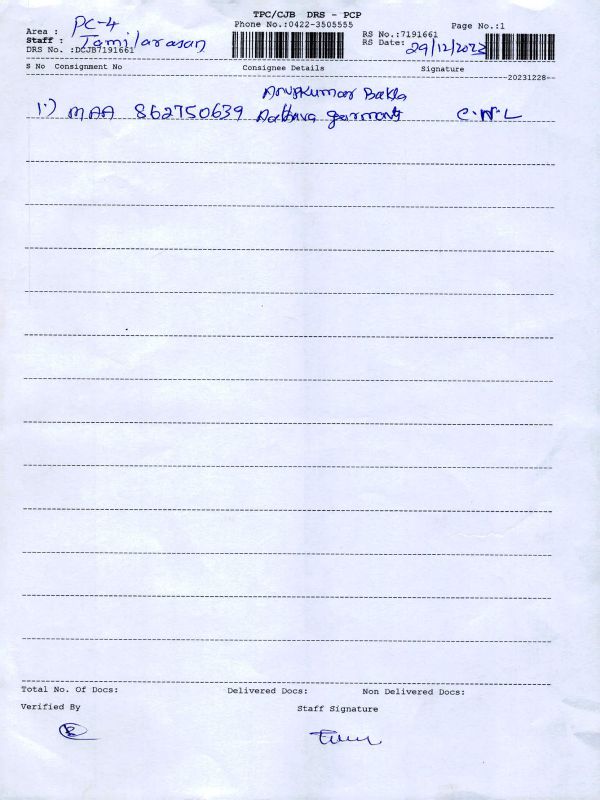 TPC/CJB DRS - PCP
Phone No.:0422-3505555
Page No.:1
Area : PC-4
Staff : Tamilarasan
DRS No. :DCJB7191661
RS No.:7191661
RS Date: 29/12/2023
S No Consignment No Consignee Details Signature
20231228
Arunkumar Bakla
1) MAA 862750639 garments C.N.L
Total No. Of Docs: Delivered Docs: Non Delivered Docs:
Verified By Staff Signature